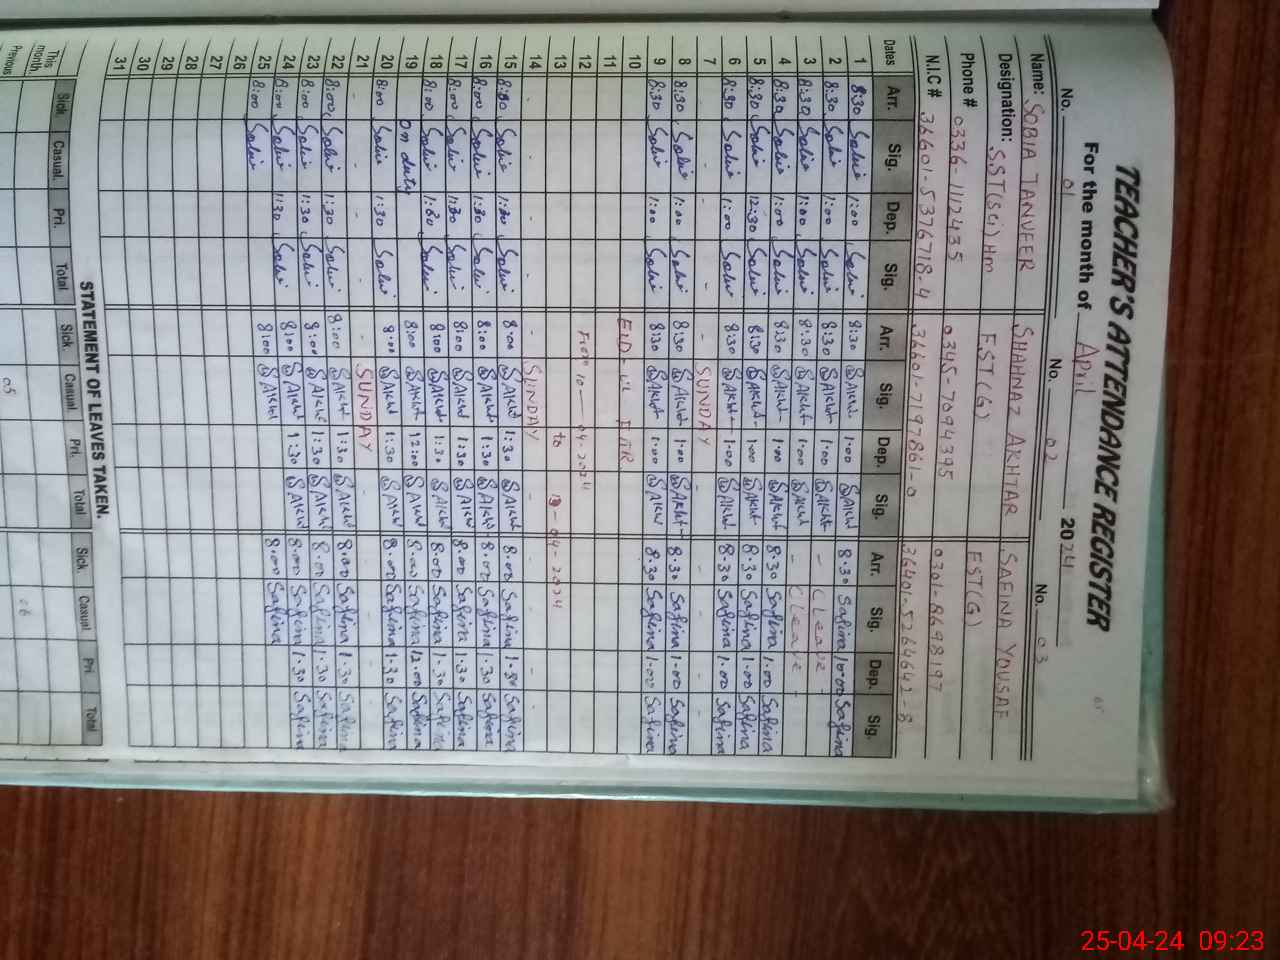 TEACHER'S ATTENDANCE REGISTER
For the month of April 2024
No. 01 No. 02 No. 03
Name: SOBIA TANVEER SHAHNAZ AKHTAR SAFINA YOUSAF
Designation: S.ST(Sci) HM EST(G) EST(G)
Phone # 0336-1112435 0345-7094395 0301-8698197
N.I.C # 36601-5376718-4 36601-7197861-0 36401-5264642-8
Dates Arr. Sig. Dep. Sig. Arr. Sig. Dep. Sig. Arr. Sig. Dep. Sig.
1 8:30 Sobia 1:00 Sobia 8:30 SAkht 1:00 SAkht 8:30 Safina 10:00 Safina
2 8:30 Sobia 1:00 Sobia 8:30 SAkht 1:00 SAkht - C Leave -
3 8:30 Sobia 1:00 Sobia 8:30 SAkht 1:00 SAkht - C Leave -
4 8:30 Sobia 1:00 Sobia 8:30 SAkht 1:00 SAkht 8:30 Safina 1:00 Safina
5 8:30 Sobia 12:30 Sobia 8:30 SAkht 1:00 SAkht 8:30 Safina 1:00 Safina
6 8:30 Sobia 1:00 Sobia 8:30 SAkht 1:00 SAkht 8:30 Safina 1:00 Safina
7 - - - - SUNDAY - - -
8 8:30 Sobia 1:00 Sobia 8:30 SAkht 1:00 SAkht 8:30 Safina 1:00 Safina
9 8:30 Sobia 1:00 Sobia 8:30 SAkht 1:00 SAkht 8:30 Safina 1:00 Safina
10 EID-ul FITR
11
12 From 10-04-2024
13 to 13-04-2024
14 - - - - SUNDAY - - -
15 8:00 Sobia 1:30 Sobia 8:00 SAkht 1:30 SAkht 8:00 Safina 1:30 Safina
16 8:00 Sobia 1:30 Sobia 8:00 SAkht 1:30 SAkht 8:00 Safina 1:30 Safina
17 8:00 Sobia 1:30 Sobia 8:00 SAkht 1:30 SAkht 8:00 Safina 1:30 Safina
18 8:00 Sobia 1:30 Sobia 8:00 SAkht 1:30 SAkht 8:00 Safina 1:30 Safina
19 on duty 8:00 SAkht 12:00 SAkht 8:00 Safina 12:00 Safina
20 8:00 Sobia 1:30 Sobia 8:00 SAkht 1:30 SAkht 8:00 Safina 1:30 Safina
21 - - - - SUNDAY - - -
22 8:00 Sobia 1:30 Sobia 8:00 SAkht 1:30 SAkht 8:00 Safina 1:30 Safina
23 8:00 Sobia 1:30 Sobia 8:00 SAkht 1:30 SAkht 8:00 Safina 1:30 Safina
24 8:00 Sobia 1:30 Sobia 8:00 SAkht 1:30 SAkht 8:00 Safina 1:30 Safina
25 8:00 Sobia 8:00 SAkht 8:00 Safina
26
27
28
29
30
31
STATEMENT OF LEAVES TAKEN.
Sick. Casual. Pri. Total Sick. Casual. Pri. Total Sick. Casual Pri Total
This month.
Previous 05 06
25-04-24 09:23